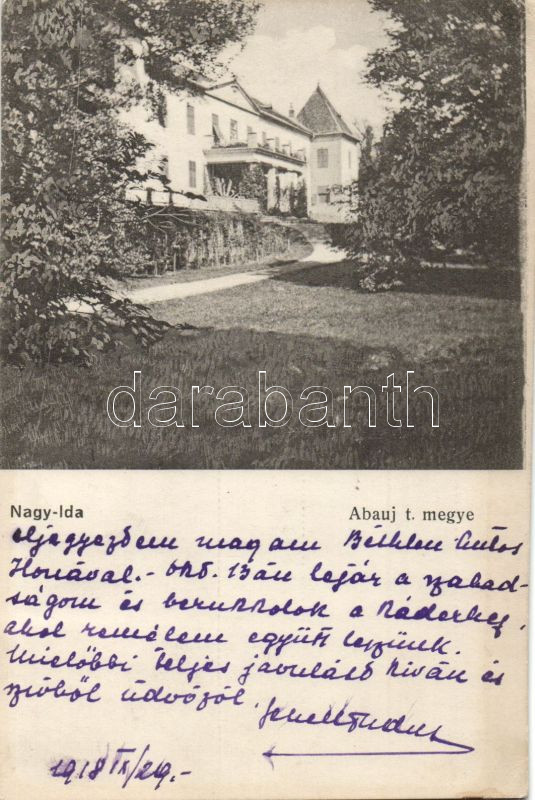 darabanth
Nagy-Ida
Abauj t. megye
eljegyeztem magam Bethlen
Ilonával.- Okt. 13án lejár a szabad-
ságom és berukkolok a káderhez,
ahol remélem együtt leszünk.
Mielőbbi teljes javulást kiván és
szívből üdvözöl.
1918 IX/29.-